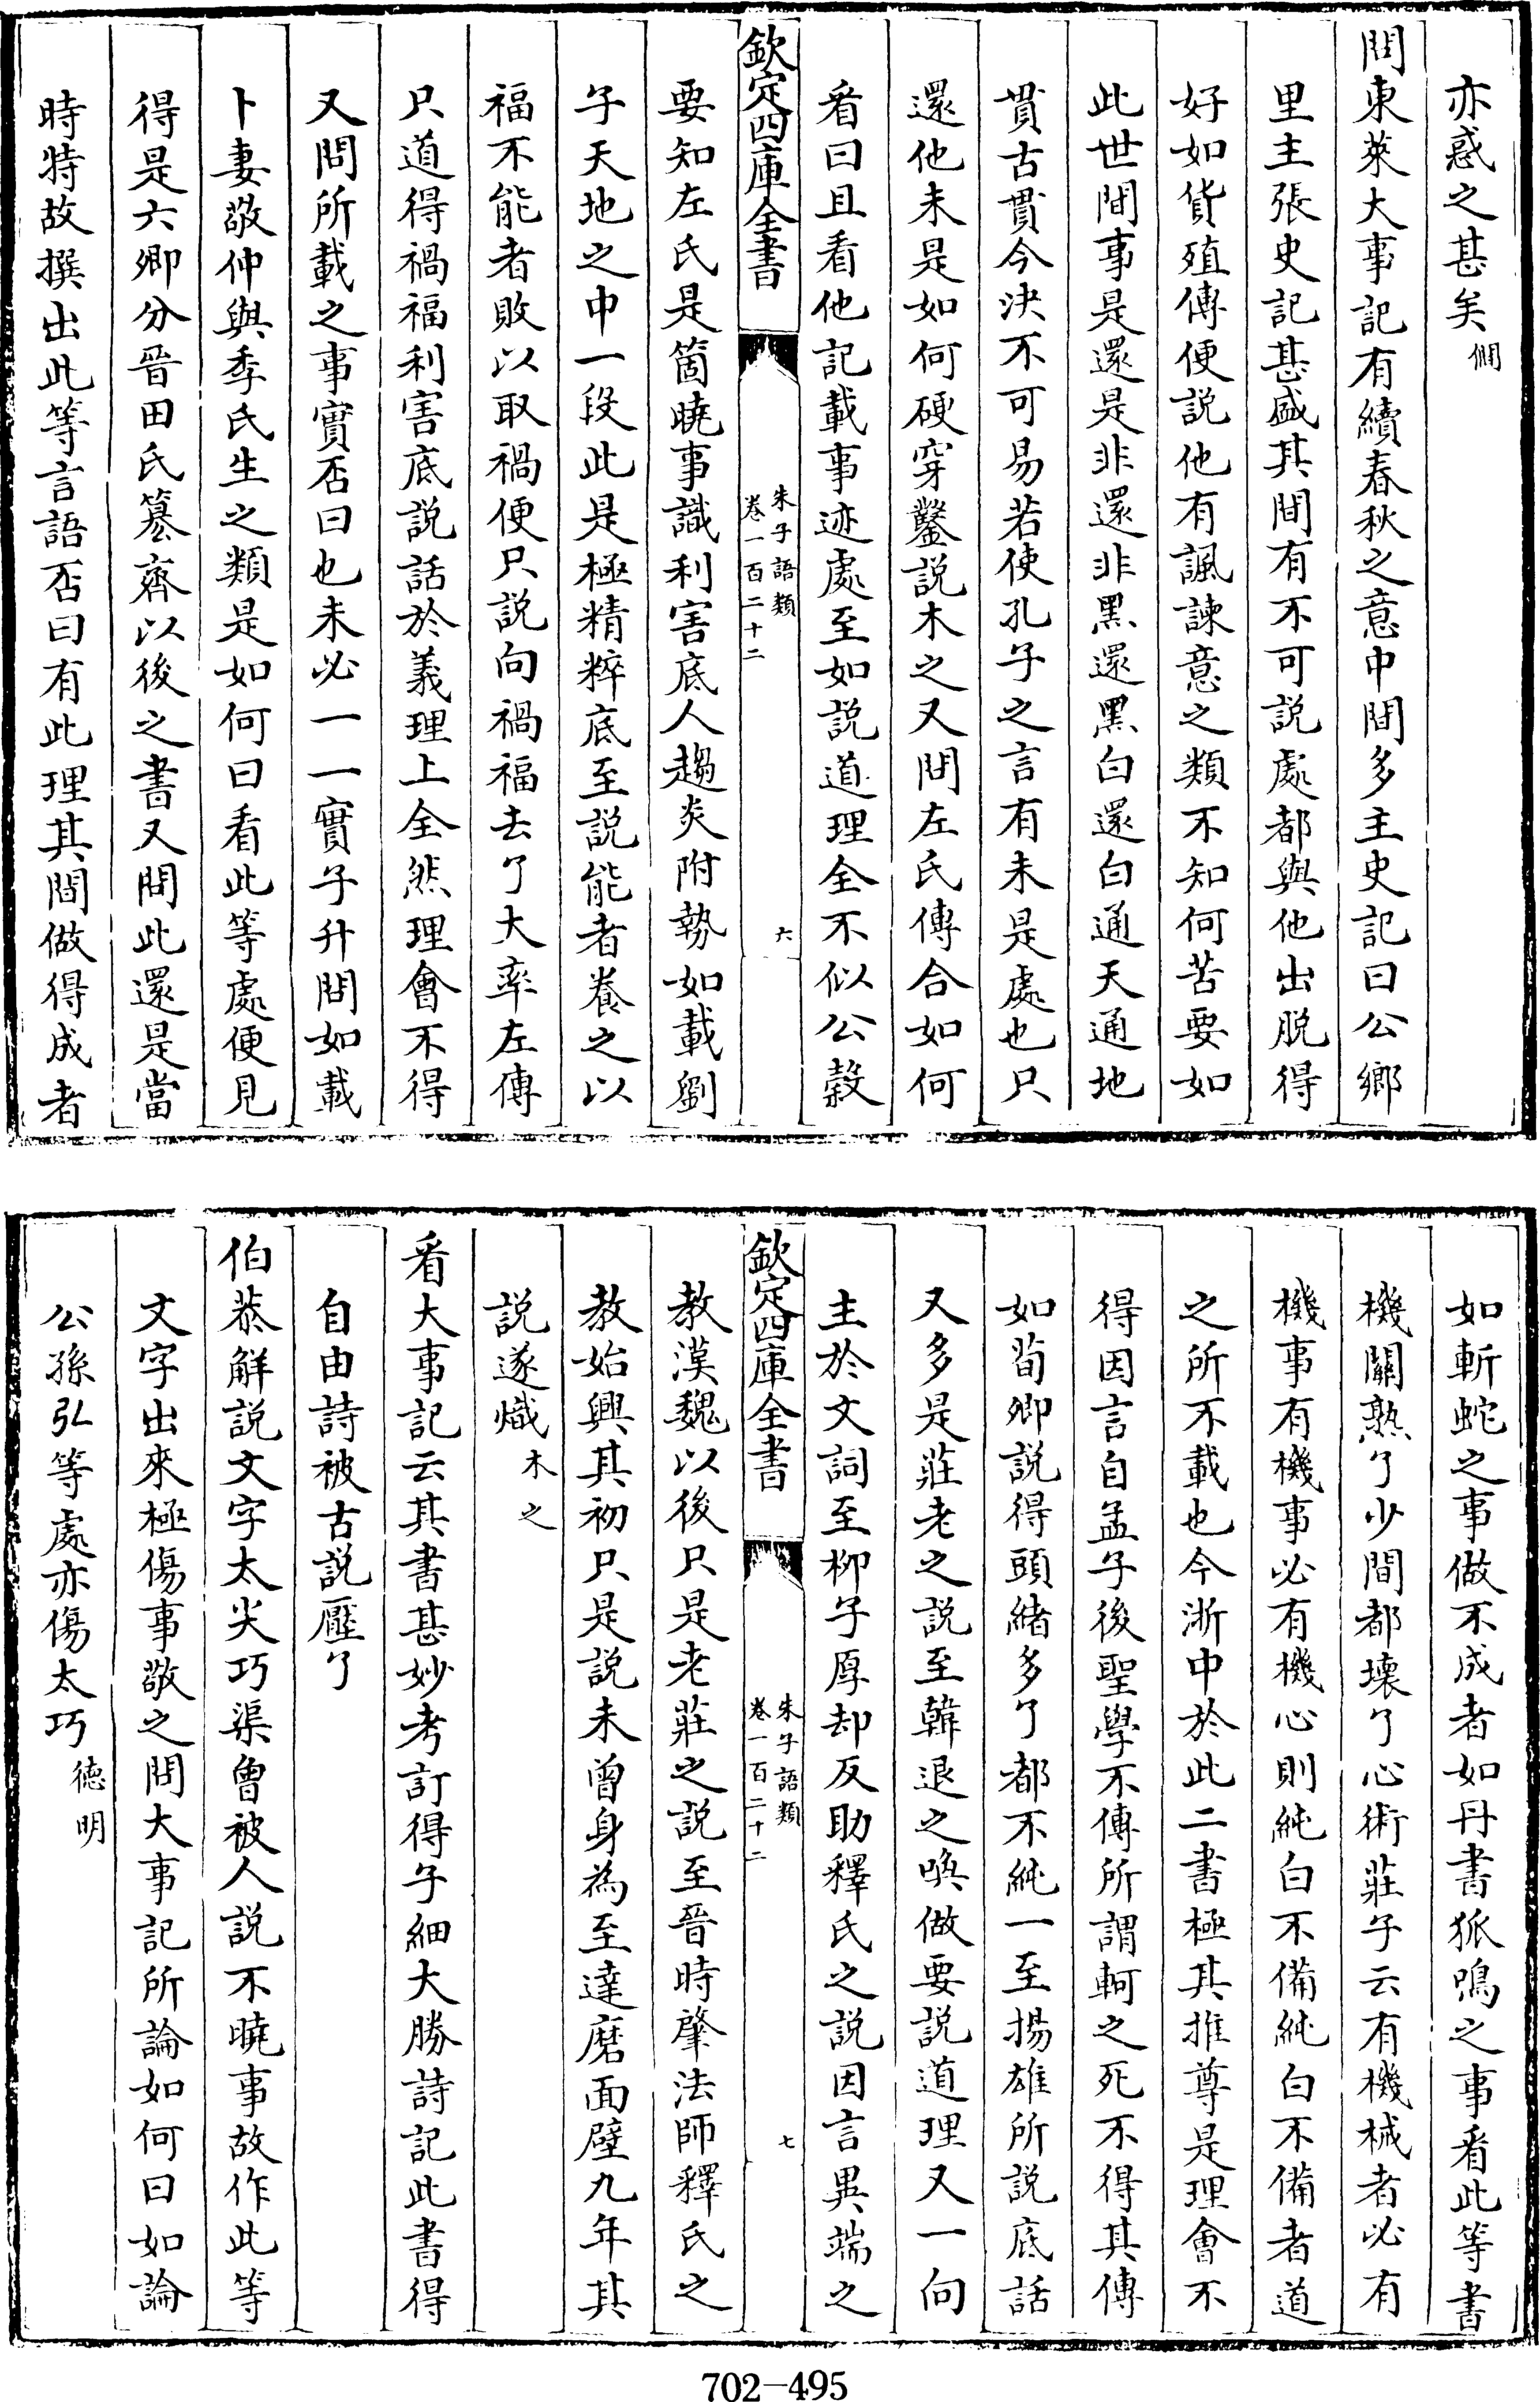 亦惑之甚矣㦓
問東萊大事記有續春秋之意中間多主史記曰公鄉
里主張史記甚盛其間有不可説處都與他出脱得
好如貨殖傳便説他有諷諫意之類不知何苦要如
此世間事是還是非還非黑還黑白還白通天通地
貫古貫今決不可易若使孔子之言有未是處也只
還他未是如何硬穿鑿説木之又問左氏傳合如何
看曰且看他記載事迹處至如説道理全不似公穀
欽定四庫全書
朱子語類
卷一百二十二
六
要知左氏是箇曉事識利害底人趨炎附勢如載劉
子天地之中一段此是極精粹底至説能者養之以
福不能者敗以取禍便只説向禍福去了大率左傳
只道得禍福利害底説話於義理上全然理會不得
又問所載之事實否曰也未必一一實子升問如載
卜妻敬仲與季氏生之類是如何曰看此等處便見
得是六卿分晉田氏簒齊以後之書又問此還是當
時特故撰出此等言語否曰有此理其間做得成者
如斬蛇之事做不成者如丹書狐鳴之事看此等書
機關熟了少間都壞了心術莊子云有機械者必有
機事有機事必有機心則純白不備純白不備者道
之所不載也今浙中於此二書極其推尊是理會不
得因言自孟子後聖學不傳所謂軻之死不得其傳
如荀卿説得頭緒多了都不純一至揚雄所説底話
又多是莊老之説至韓退之喚做要説道理又一向
主於文詞至柳子厚却反助釋氏之説因言異端之
欽定四庫全書
朱子語類
卷一百二十二
七
教漢魏以後只是老莊之説至晉時肇法師釋氏之
教始興其初只是説未曾身為至達磨面壁九年其
説遂熾木之
看大事記云其書甚妙考訂得子細大勝詩記此書得
自由詩被古説壓了
伯恭解説文字太尖巧渠曾被人説不曉事故作此等
文字出來極傷事敬之問大事記所論如何曰如論
公孫弘等處亦傷太巧德明
702-495